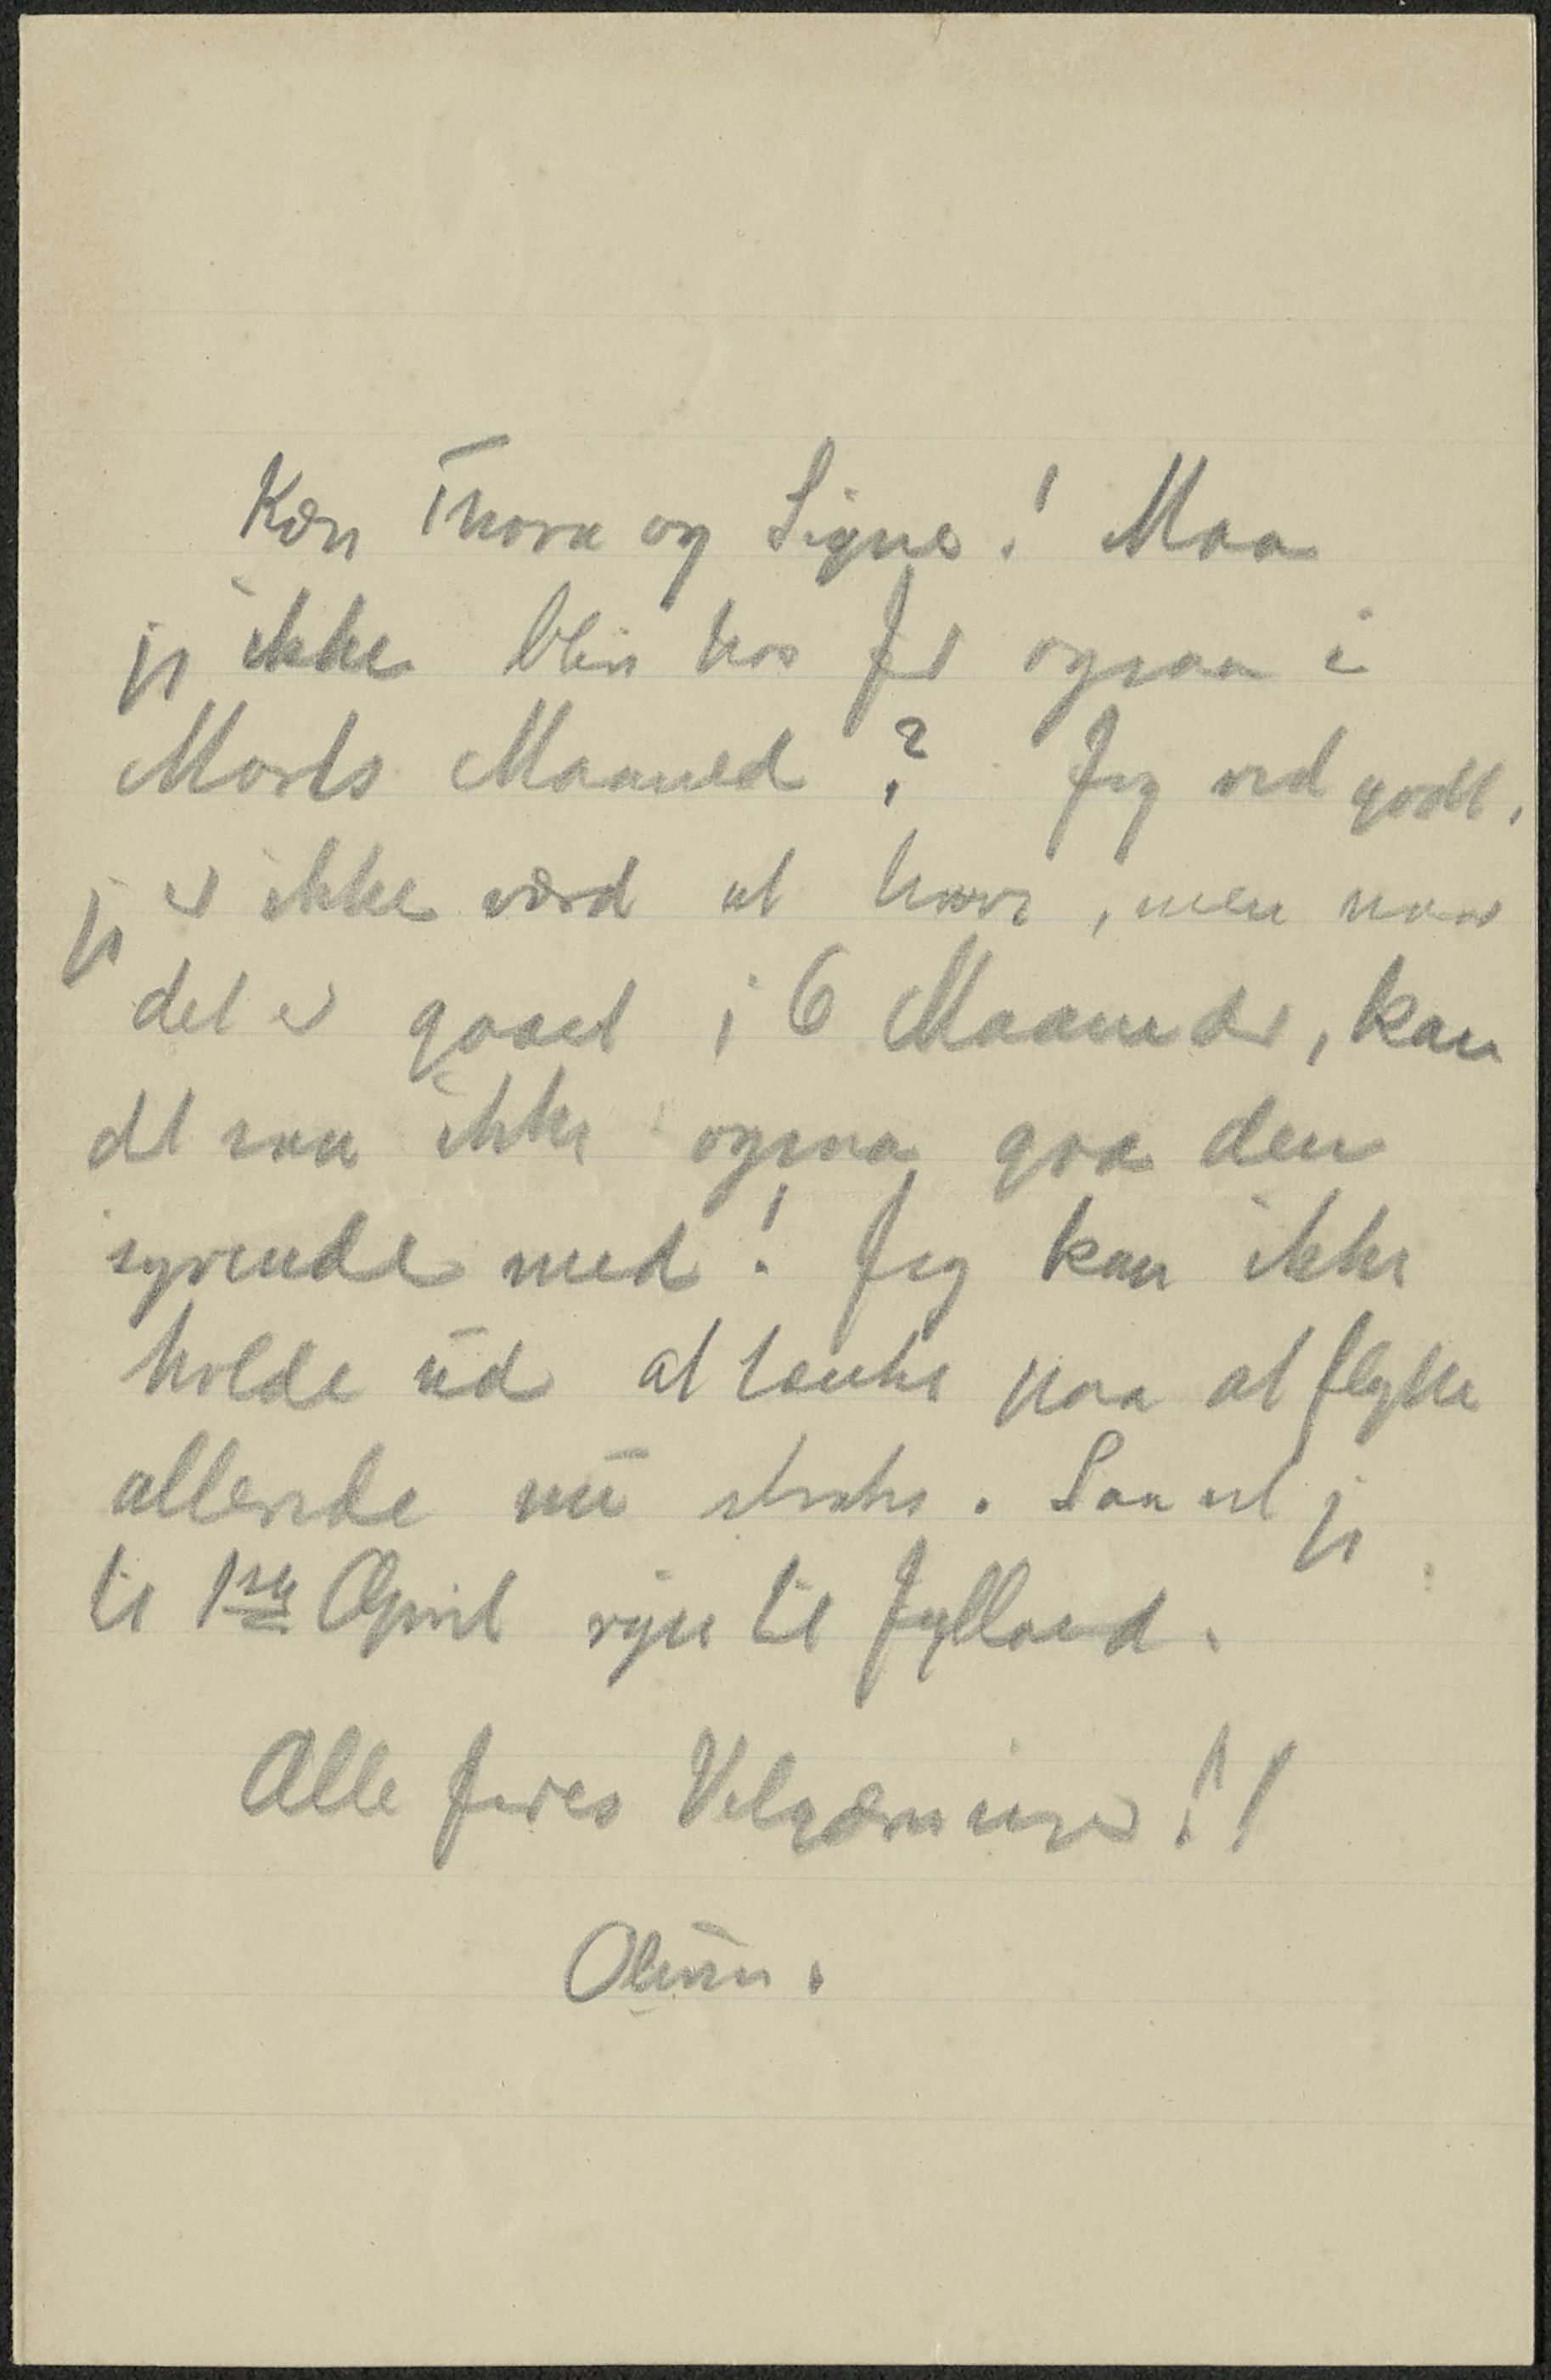 Kære Thora og Signe! Maa
jeg ikke bliv hos Jer ogsaa i
Marts Maaned? Jeg ved godt,
jeg er ikke værd at have, men naar
det er gaaet i 6 Maaneder, kan
det saa ikke ogsaa gaa den
syvende med! Jeg kan ikke
holde ud at tænke paa at flytte
allerede nu straks. Saa vil jeg
til 1ste April rejse til Jylland.
Alle Jeres Velgærninger!!